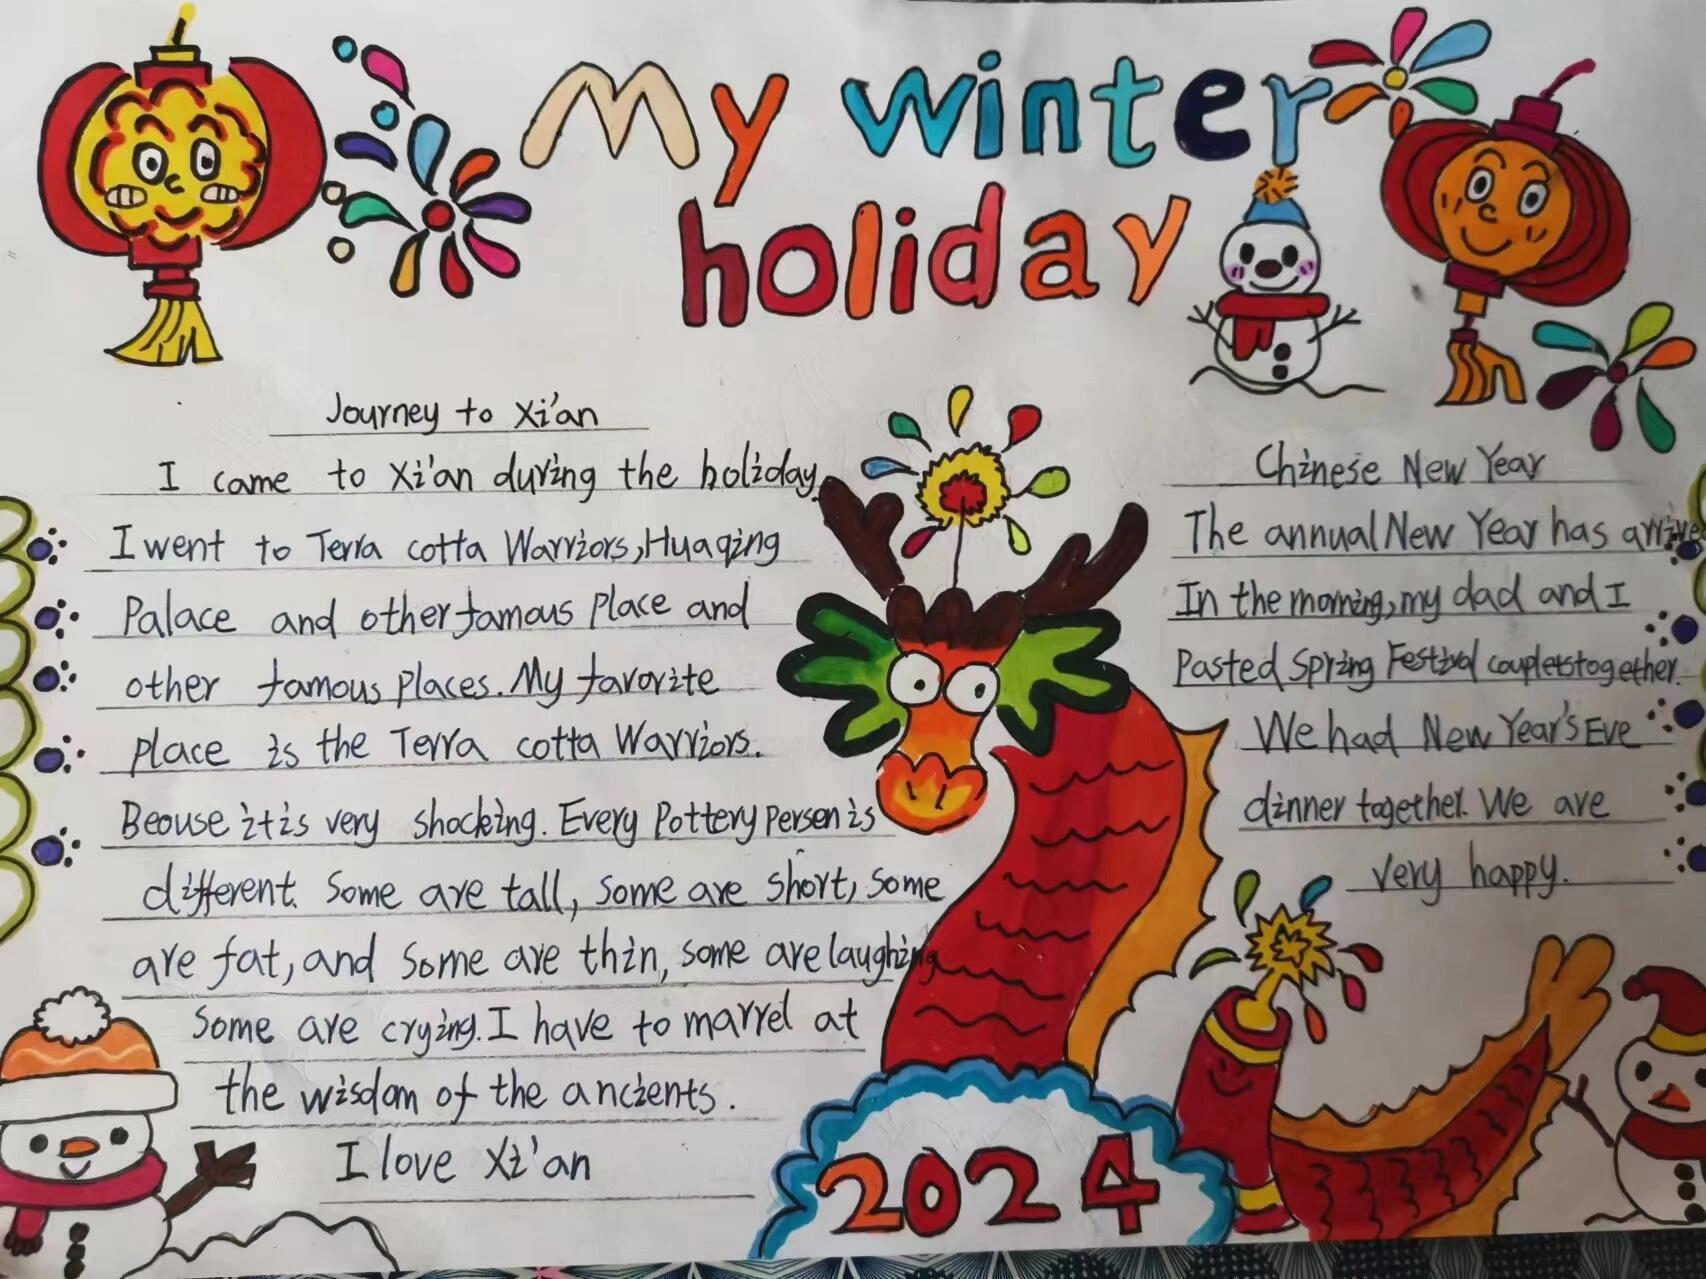 My winter
holiday
Journey to Xi'an
I came to Xi'an during the holiday.
I went to Terra cotta Warriors, Huaqing
Palace and other famous place and
other famous places. My favorite
place is the Terra cotta Warriors.
Beouse it is very shocking. Every Pottery persen is
different. Some are tall, some are short, some
are fat, and some are thin, some are laughing
some are crying. I have to marrel at
the wisdom of the ancients.
I love Xi'an
Chinese New Year
The annual New Year has arrive
In the morning, my dad and I
Pasted Spring Festival couplets together.
We had New Year's Eve
dinner together. We are
very happy.
2024